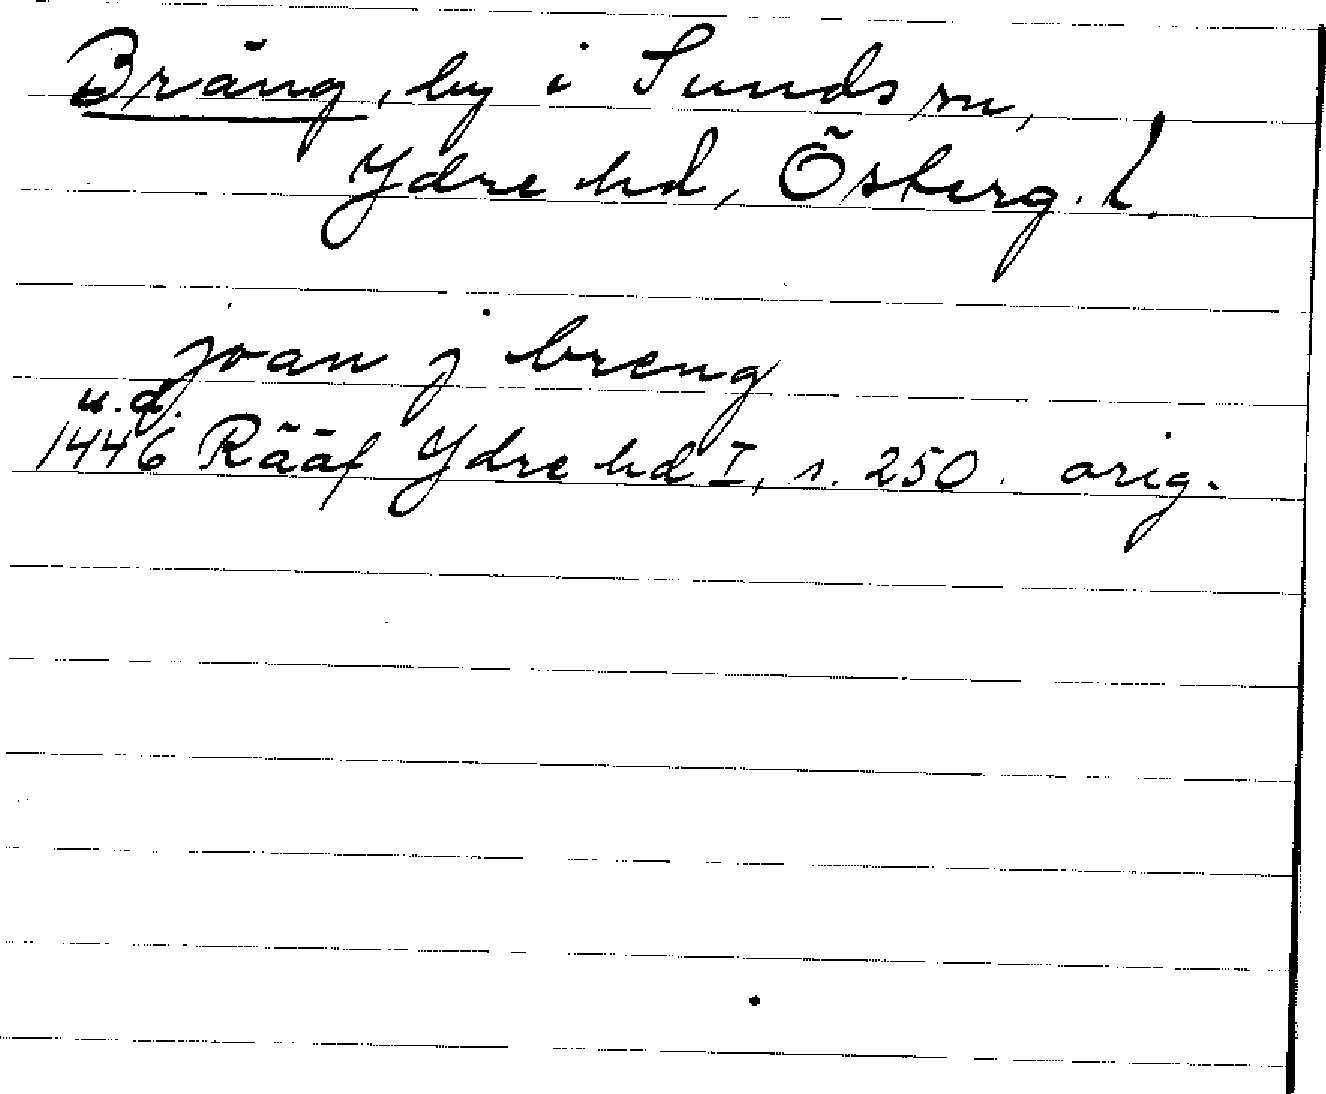 Bräng, by i Sunds sn,
Ydre hd, Österg. l.
joan j breng
u.d.
1446 Rääf Ydre hd I, s. 250. orig.